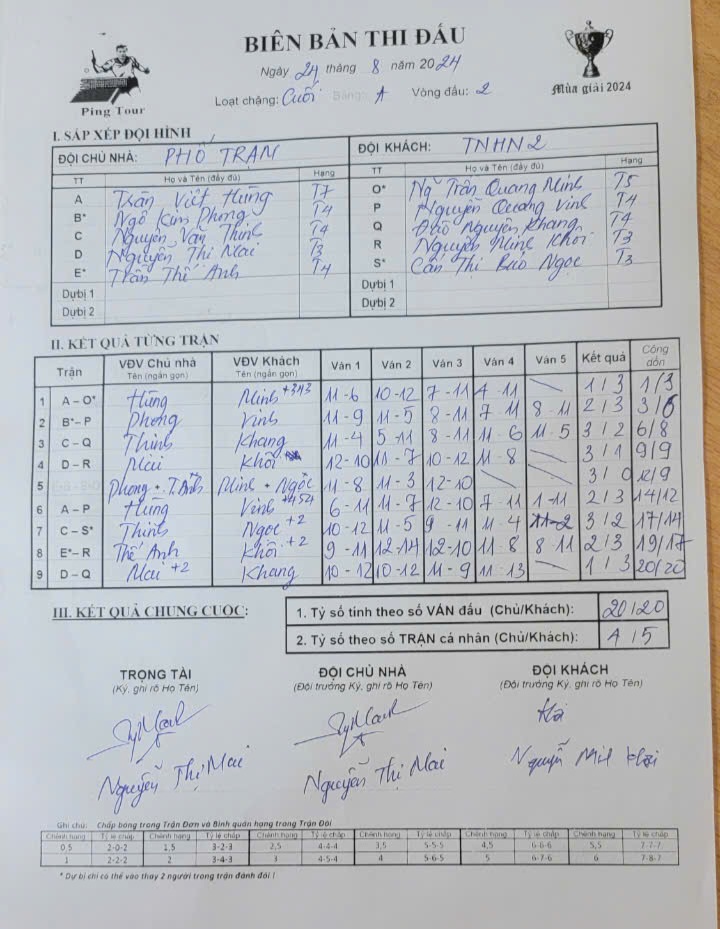 BIÊN BẢN THI ĐẤU
Ngày 24 tháng 8 năm 2024
Ping Tour
Loạt chặng: Cuối Bảng: A Vòng đấu: 2
Mùa giải 2024
I. SẮP XẾP ĐỘI HÌNH
ĐỘI CHỦ NHÀ: PHỐ TRẠM ĐỘI KHÁCH: TNHN2
TT Họ và Tên (đầy đủ) Hạng TT Họ và Tên (đầy đủ) Hạng
A Trần Viết Hưng T7 O* Ng Trần Quang Minh T5
B* Ngô Kim Phong T4 P Nguyễn Quang Vinh T4
C Nguyễn Văn Thinh T4 Q Đào Nguyên Khang T4
D Nguyễn Thị Mai T3 R Nguyễn Minh Khôi T3
E* Trần Thế Anh T4 S* Cấn Thị Bảo Ngọc T3
Dự bị 1 Dự bị 1
Dự bị 2 Dự bị 2
II. KẾT QUẢ TỪNG TRẬN
Trận VĐV Chủ nhà Tên (ngắn gọn) VĐV Khách Tên (ngắn gọn) Ván 1 Ván 2 Ván 3 Ván 4 Ván 5 Kết quả Cộng dồn
1 A – O* Hưng Minh +343 11 - 6 10 - 12 7 - 11 4 - 11 1 / 3 1/3
2 B* – P Phong Vinh 11 - 9 11 - 5 8 - 11 7 - 11 8 - 11 2 / 3 3/6
3 C – Q Thinh Khang 11 - 4 5 - 11 8 - 11 11 - 6 11 - 5 3 / 2 6/8
4 D – R Mai Khôi 12 - 10 11 - 7 10 - 12 11 - 8 3 / 1 9/9
5 Phong + T.Anh Minh + Ngọc 11 - 8 11 - 3 12 - 10 3 / 0 12/9
6 A – P Hưng Vinh +454 6 - 11 11 - 7 12 - 10 7 - 11 1 - 11 2 / 3 14/12
7 C – S* Thinh Ngọc +2 10 - 12 11 - 5 9 - 11 11 - 4 11 - 2 3 / 2 17/14
8 E* – R Thế Anh Khôi +2 9 - 11 12 - 14 12 - 10 11 - 8 8 - 11 2 / 3 19/17
9 D – Q Mai +2 Khang 10 - 12 10 - 12 11 - 9 11 - 13 1 / 3 20/20
III. KẾT QUẢ CHUNG CUỘC:
1. Tỷ số tính theo số VÁN đấu (Chủ/Khách): 20/20
2. Tỷ số theo số TRẬN cá nhân (Chủ/Khách): 4 / 5
TRỌNG TÀI ĐỘI CHỦ NHÀ ĐỘI KHÁCH
(Ký, ghi rõ Họ Tên) (Đội trưởng Ký, ghi rõ Họ Tên) (Đội trưởng Ký, ghi rõ Họ Tên)
Nguyễn Thị Mai Nguyễn Thị Mai Nguyễn Minh Khôi
Ghi chú: Chấp bóng trong Trận Đơn và Bình quân hạng trong Trận Đôi
Chênh hạng Tỷ lệ chấp Chênh hạng Tỷ lệ chấp Chênh hạng Tỷ lệ chấp Chênh hạng Tỷ lệ chấp Chênh hạng Tỷ lệ chấp Chênh hạng Tỷ lệ chấp
0,5 2-0-2 1,5 3-2-3 2,5 4-4-4 3,5 5-5-5 4,5 6-6-6 5,5 7-7-7
1 2-2-2 2 3-4-3 3 4-5-4 4 5-6-5 5 6-7-6 6 7-8-7
* Dự bị chỉ có thể vào thay 2 người trong trận đánh đôi !